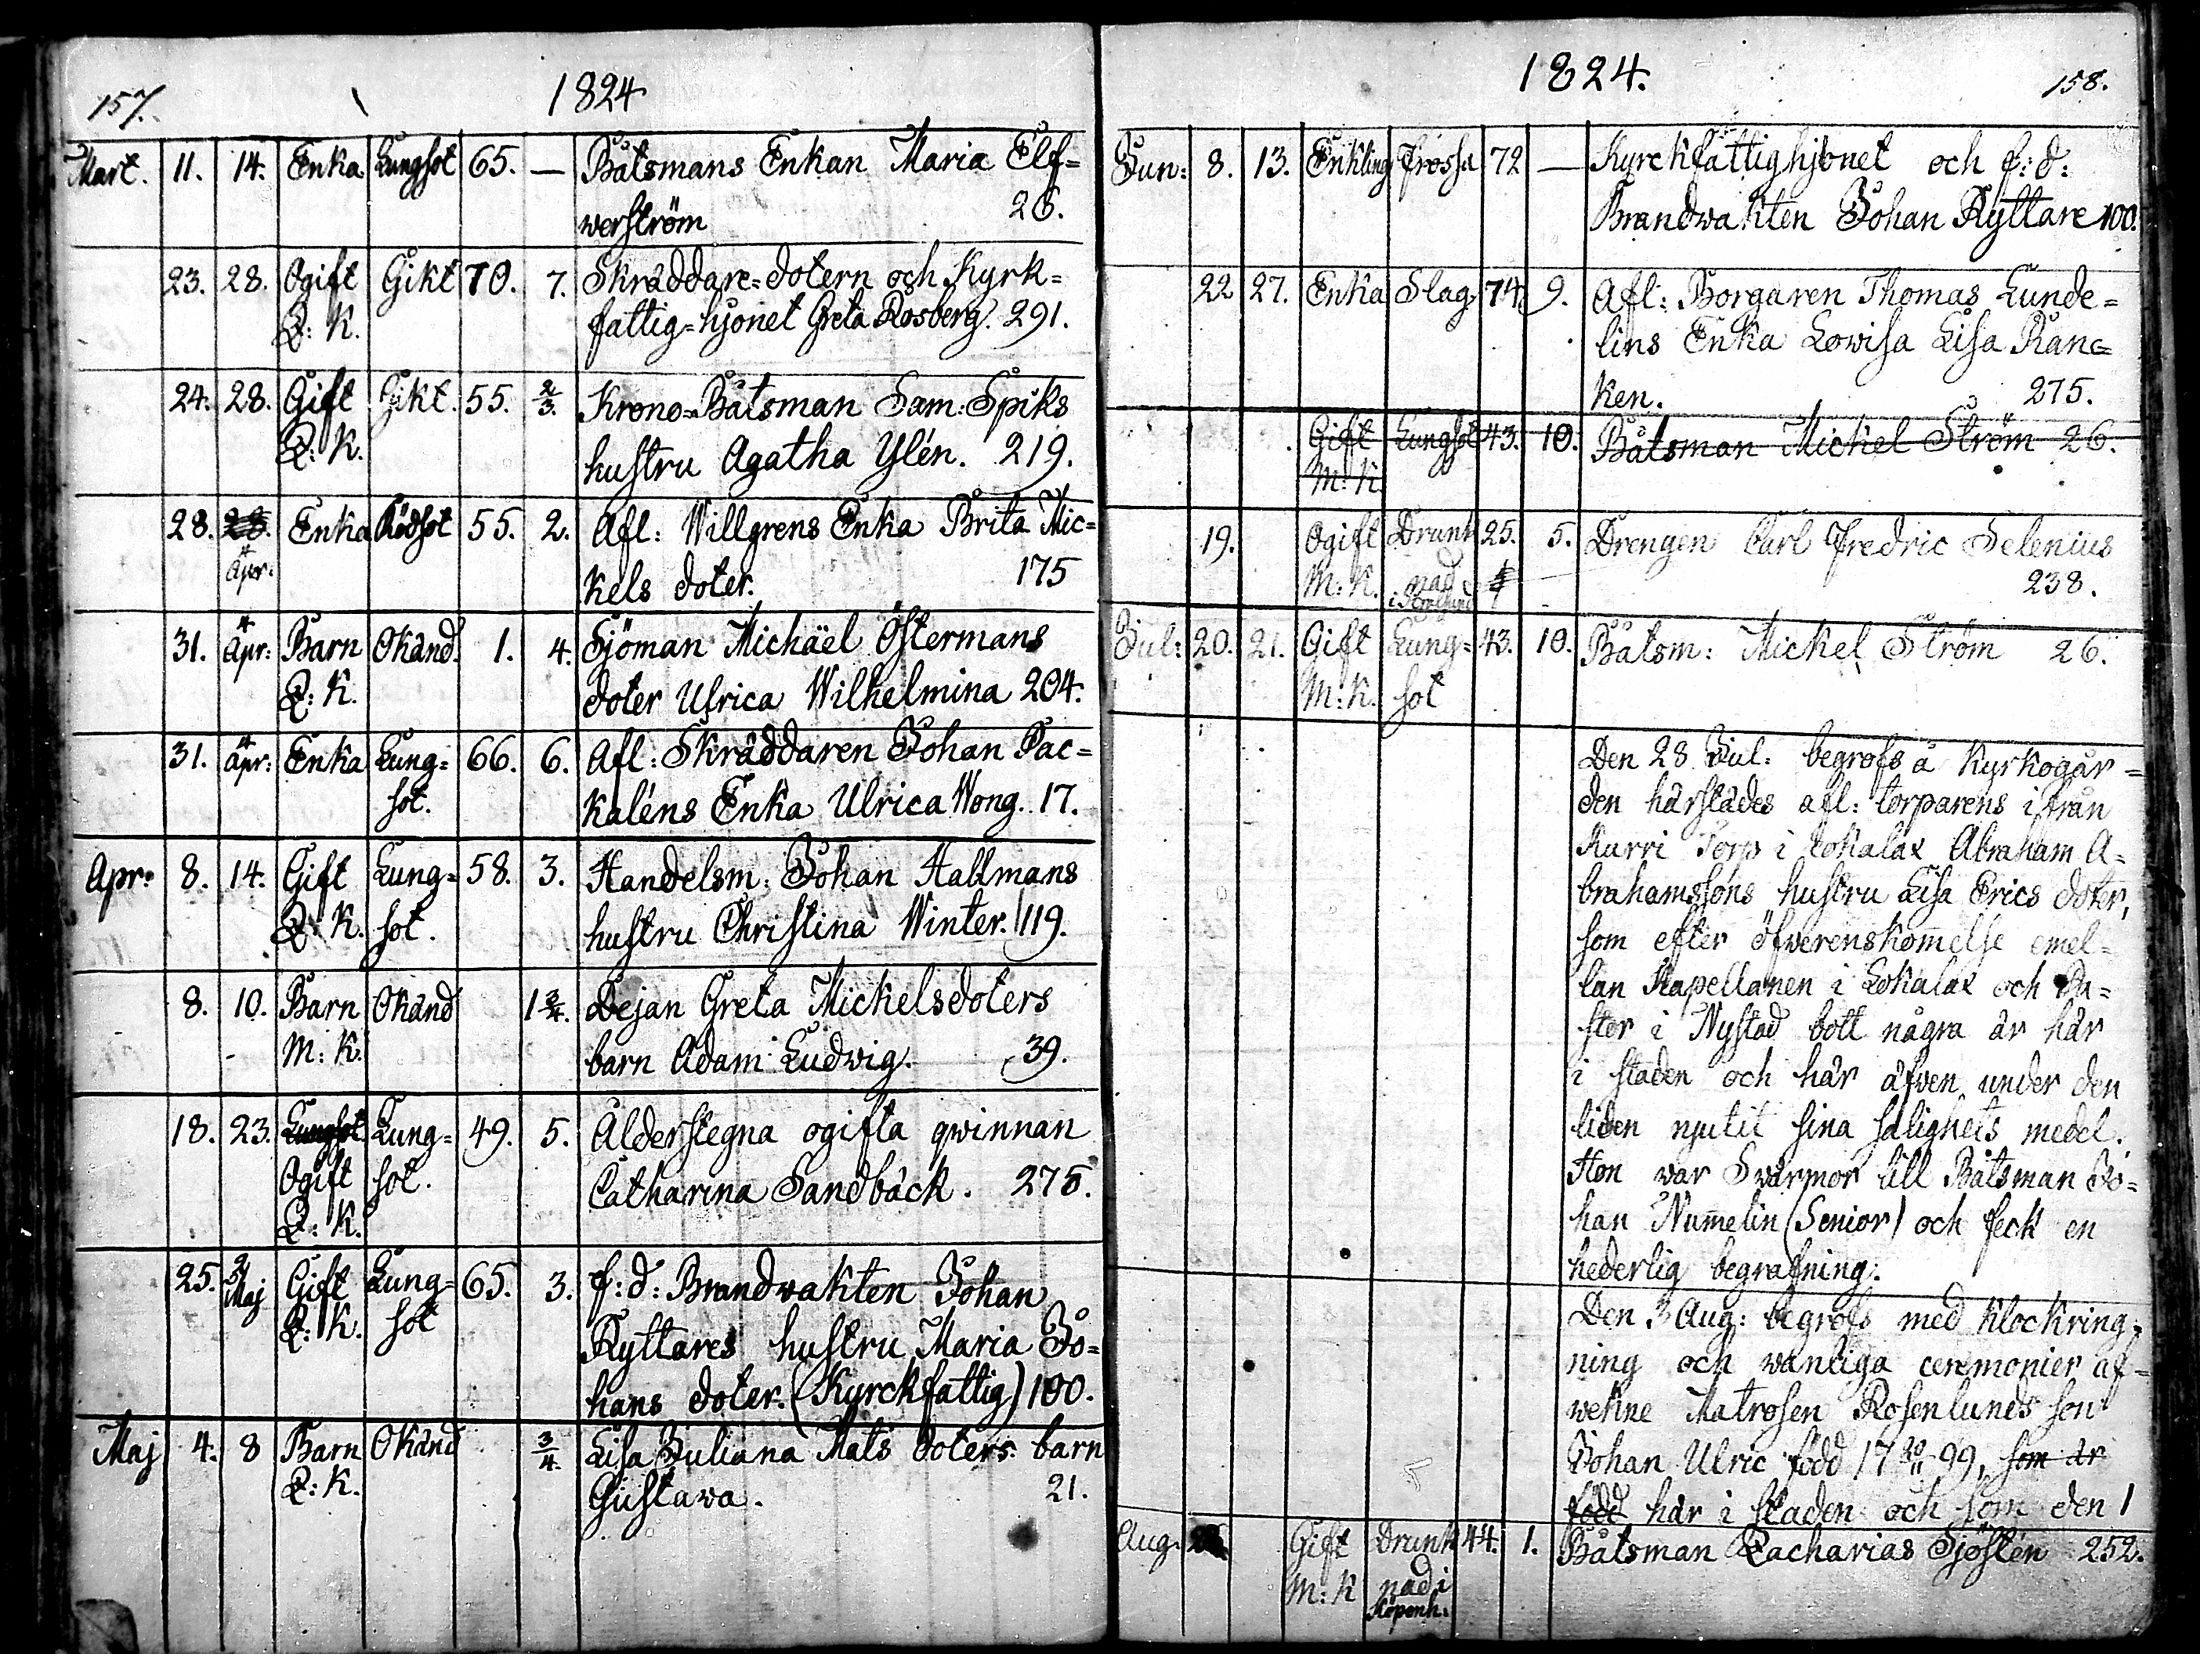 157.
1824
Mart. 11. 14. Enka Lungsot 65. — Båtsmans Enkan Maria Elf=
werström 26.
23. 28. Ogift Gikt 70. 7. Skräddare=dotern och Kyrk=
Q: K. fattig=hjonet Greta Rosberg. 291.
24. 28. Gift Gikt. 55. 2/3. Krono=Båtsman Sam: Spiks
Q: K. hustru Agatha Ylén. 219.
28. 28. Enka Rödsot 55. 2. Afl: Willgrens Enka Brita Mic=
4 Apr: kels doter. 175
31. 4 Apr: Barn Okänd. 1. 4. Sjöman Michäel Östermans
Q: K. doter Ulrica Wilhelmina 204.
31. 4 Apr: Enka Lung= 66. 6. Afl: Skräddaren Johan Pac=
sot. kaléns Enka Ulrica Wong. 17.
Apr: 8. 14. Gift Lung= 58. 3. Handelsm: Johan Hallmans
Q: K. sot. hustru Christina Winter. 119.
8. 10. Barn Okänd 1 3/4. Dejan Greta Mickelsdoters
M: K. barn Adam Ludwig. 39.
18. 23. Lungsot Lung= 49. 5. Ålderstegna ogifta qwinnan
Ogift sot. Catharina Sandbäck. 275.
Q: K.
25. 2 Maj Gift Lung= 65. 3. f: d: Brandwakten Johan
Q: K. sot Ryttares hustru Maria Jo=
hans doter. (Kyrckfattig) 100.
Maj 4. 8 Barn Okänd 3/4. Lisa Juliana Mats doters barn
Q: K. Gustava. 21.
1824.
158.
Jun: 8. 13. Enkling Frossa 72 — Kyrckfattighjonet och f: d:
Brandwakten Johan Ryttare 100.
22 27. Enka Slag. 74. 9. Afl: Borgaren Thomas Lunde=
lins Enka Lowisa Lisa Ranc=
ken. 275.
Gift Lungsot 43. 10. Båtsman Michel Ström 26.
M: K.
19. Ogift Drunk 25. 5. Drengen Carl Fredric Selenius
M: K. nad 238.
Jul: 20. 21. Gift Lung= 43. 10. Båtsm: Mickel Ström 26.
M: K. sot
Den 28 Jul: begrofs å Kyrkogår=
den härstädes afl: torparens ifrån
Kurri Torp i Lokalax Abraham A=
brahamssons hustru Lisa Erics doter,
som efter öfverenskommelse emel=
lan Kapellanen i Lokalax och Pa=
stor i Nystad bott några år här
i staden och här äfven under den
tiden njutit sina salighets medel.
Hon war Swärmor till Båtsman Jo=
han Numelin (Senior) och feck en
hederlig begrafning.
Den 3 Aug: begrofs med klockring=
ning och wanliga ceremonier af=
wekne Matrosen Rosenlunds son
Johan Ulric född 17 20/11 99, som är
född här i staden och som den 1
Aug. Gift Drunk 44. 1. Båtsman Zacharias Sjöstén 252.
M: K nad i
Köpenh.